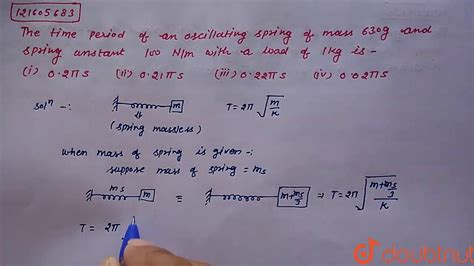 121605683
The time period of an oscillating spring of mass 630g and
spring constant 100 N/m with a load of 1kg is -
(i) 0.2π s (ii) 0.21π s (iii) 0.22π s (iv) 0.02π s
solⁿ -: m T = 2π √(m/k)
(spring massless)
when mass of spring is given -:
suppose mass of spring = ms
ms m ≡ m+ms/3 ⇒ T = 2π √((m+ms/3)/k)
T = 2π
doubtnut